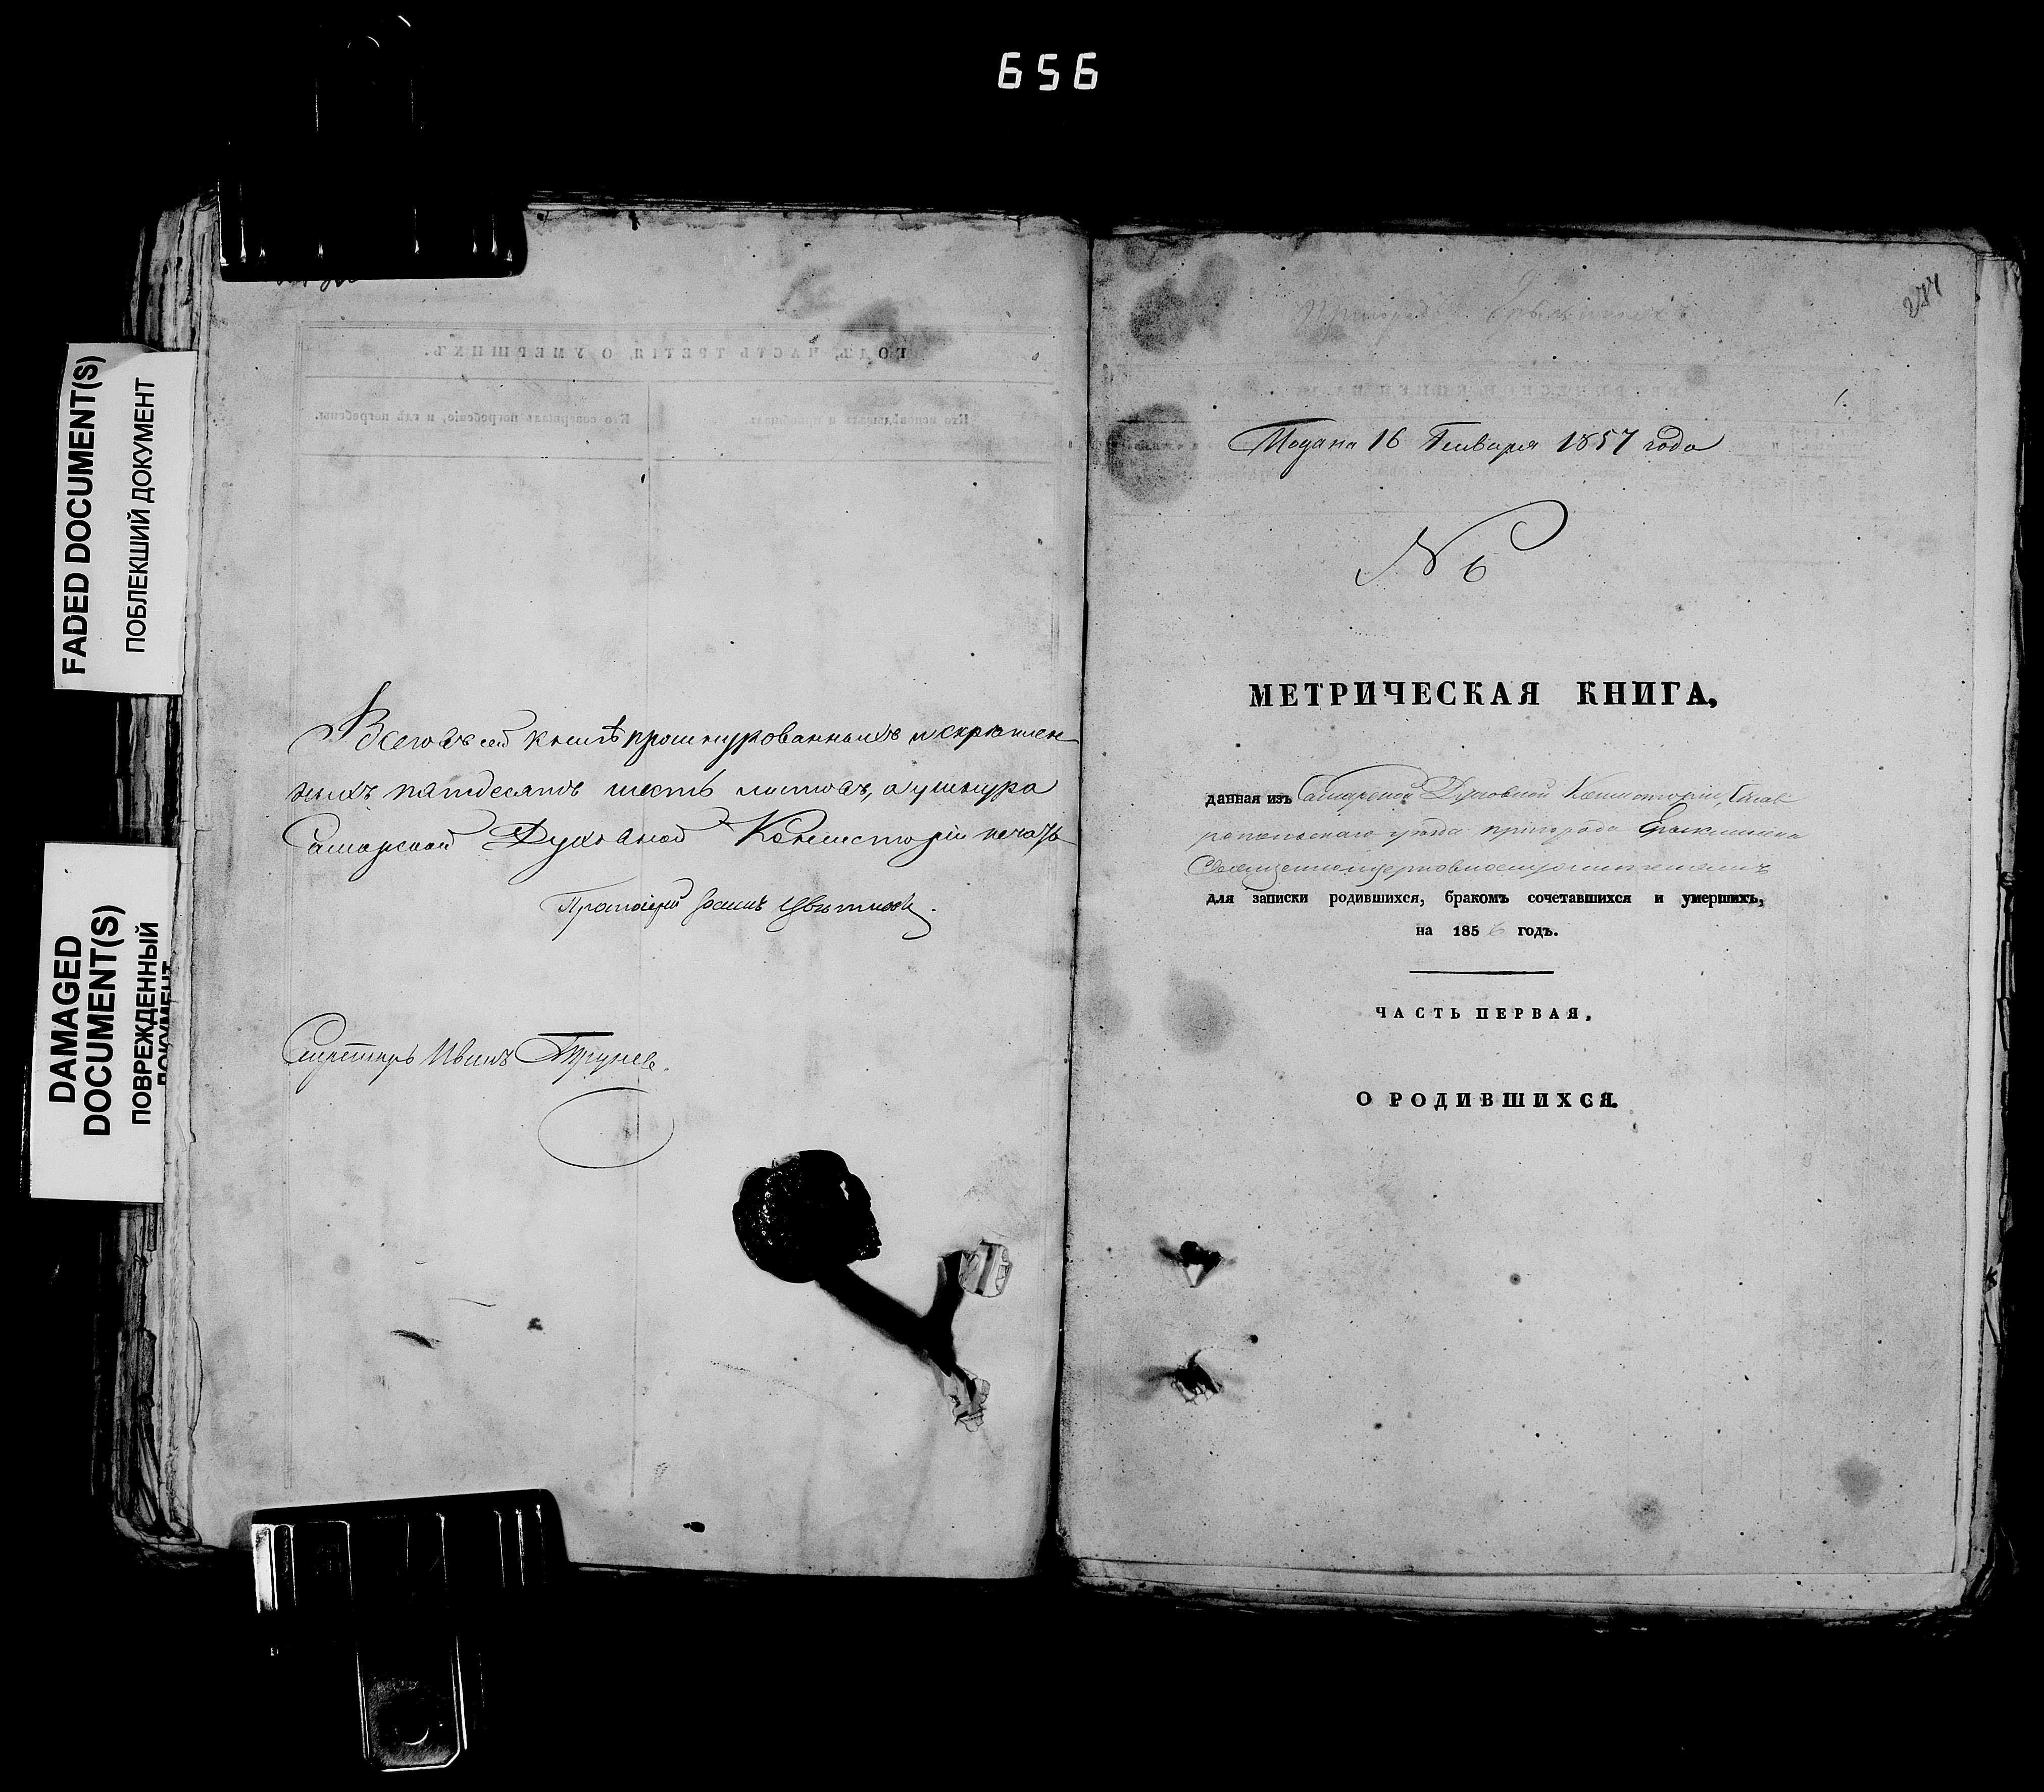 656
FADED DOCUMENT(S)
ПОБЛЕКШИЙ ДОКУМЕНТ
DAMAGED
DOCUMENT(S)
ПОВРЕЖДЕННЫЙ
ДОКУМЕНТ
ГОДЪ, ЧАСТЬ ТРЕТІЯ, О УМЕРШИХЪ.
Кто исповѣдывалъ и пріобщалъ.
Кто совершалъ погребеніе, и гдѣ погребены.
Всего въ сей книгѣ прошнурованныхъ и скрѣплен
ныхъ пятдесятъ шесть листовъ, а у шнура
Самарской Духовной Консисторіи печать
Протоіерей Іоаннъ Цвѣтковъ.
Секретарь Иванъ
284
Пригорода Ерыклинска
Подана 16 Генваря 1857 года
N 6
МЕТРИЧЕСКАЯ КНИГА,
данная изъ Самарской Духовной Консисторіи, Став
ропольскаго уѣзда пригорода Ерыклинска
Священноцерковнослужителямъ
для записки родившихся, бракомъ сочетавшихся и умершихъ,
на 1856 годъ.
ЧАСТЬ ПЕРВАЯ.
О РОДИВШИХСЯ.